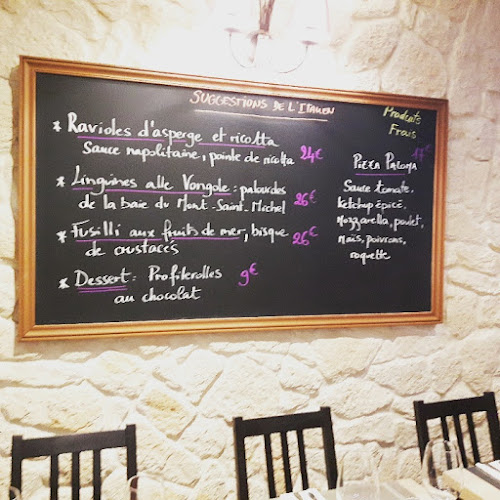 SUGGESTIONS DE L'ITALIEN
Produits
Frais
* Ravioles d'asperge et ricotta
Sauce napolitaine, pointe de ricotta 24€
* Linguines alle Vongole : palourdes
de la baie du Mont-Saint-Michel 26€
* Fusilli aux fruits de mer, bisque
de crustacés 26€
* Dessert : Profiterolles 9€
au chocolat
PIZZA PALOMA 17€
Sauce tomate,
ketchup épicé,
Mozzarella, poulet,
Maïs, poivrons,
roquette